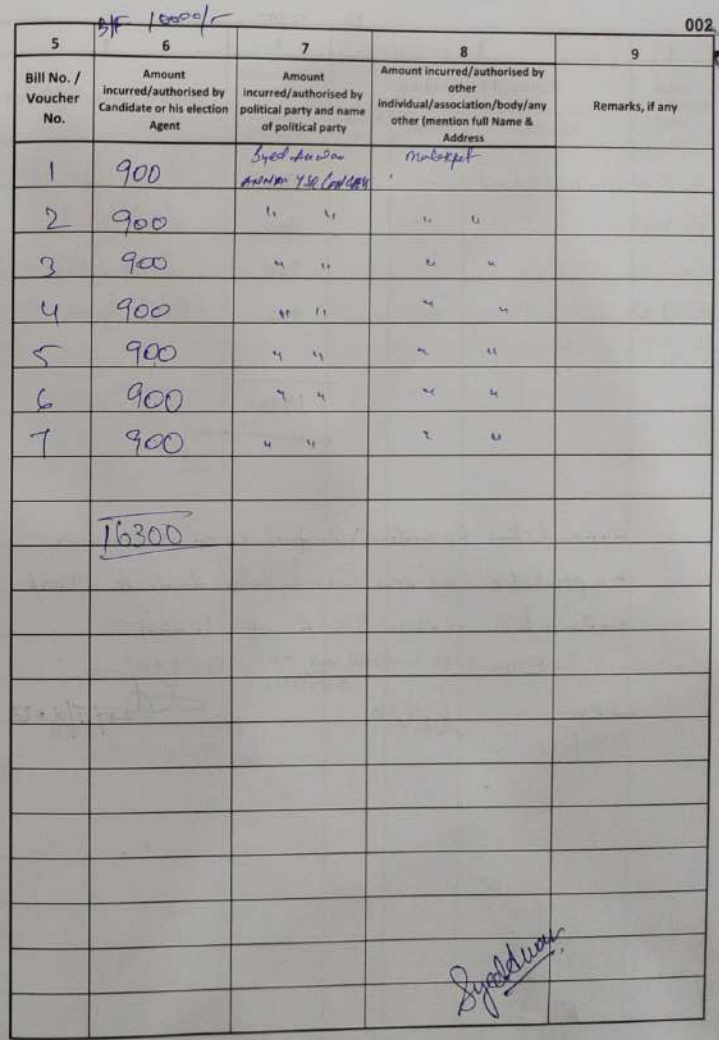 B/F 10000/-
002
5 6 7 8 9
Bill No. / Voucher No.
Amount incurred/authorised by Candidate or his election Agent
Amount incurred/authorised by political party and name of political party
Amount incurred/authorised by other individual/association/body/any other (mention full Name & Address
Remarks, if any
1 900 Syed Anwar Malakpet
YSR CONGRES
2 900 " " " "
3 900 " " " "
4 900 " " " "
5 900 " " " "
6 900 " " " "
7 900 " " " "
16300
Syed Anwar